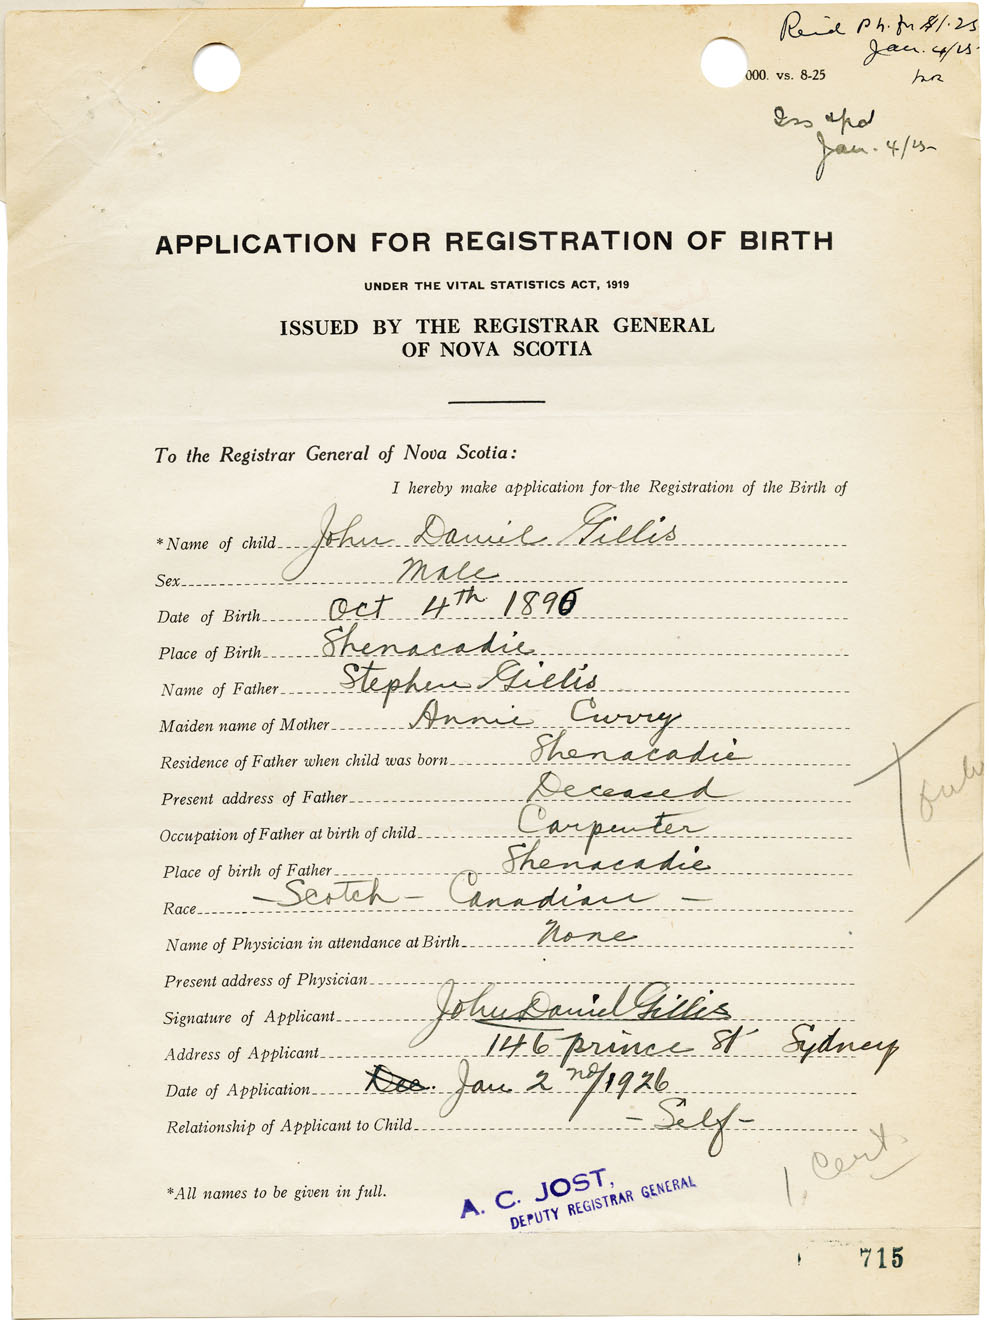 Jan. 4/25
000. vs. 8-25
Jan. 4/25
APPLICATION FOR REGISTRATION OF BIRTH
UNDER THE VITAL STATISTICS ACT, 1919
ISSUED BY THE REGISTRAR GENERAL
OF NOVA SCOTIA
To the Registrar General of Nova Scotia:
I hereby make application for the Registration of the Birth of
*Name of child John Daniel Gillis
Sex Male
Date of Birth Oct 4th 1890
Place of Birth Shenacadie
Name of Father Stephen Gillis
Maiden name of Mother Annie Curry
Residence of Father when child was born Shenacadie
Present address of Father Deceased
Occupation of Father at birth of child Carpenter
Place of birth of Father Shenacadie
Race - Scotch - Canadian -
Name of Physician in attendance at Birth None
Present address of Physician
Signature of Applicant John Daniel Gillis
Address of Applicant 146 prince St Sydney
Date of Application Dec. Jan 2nd/1926
Relationship of Applicant to Child - Self -
1 cert
*All names to be given in full.
A. C. JOST,
DEPUTY REGISTRAR GENERAL
715